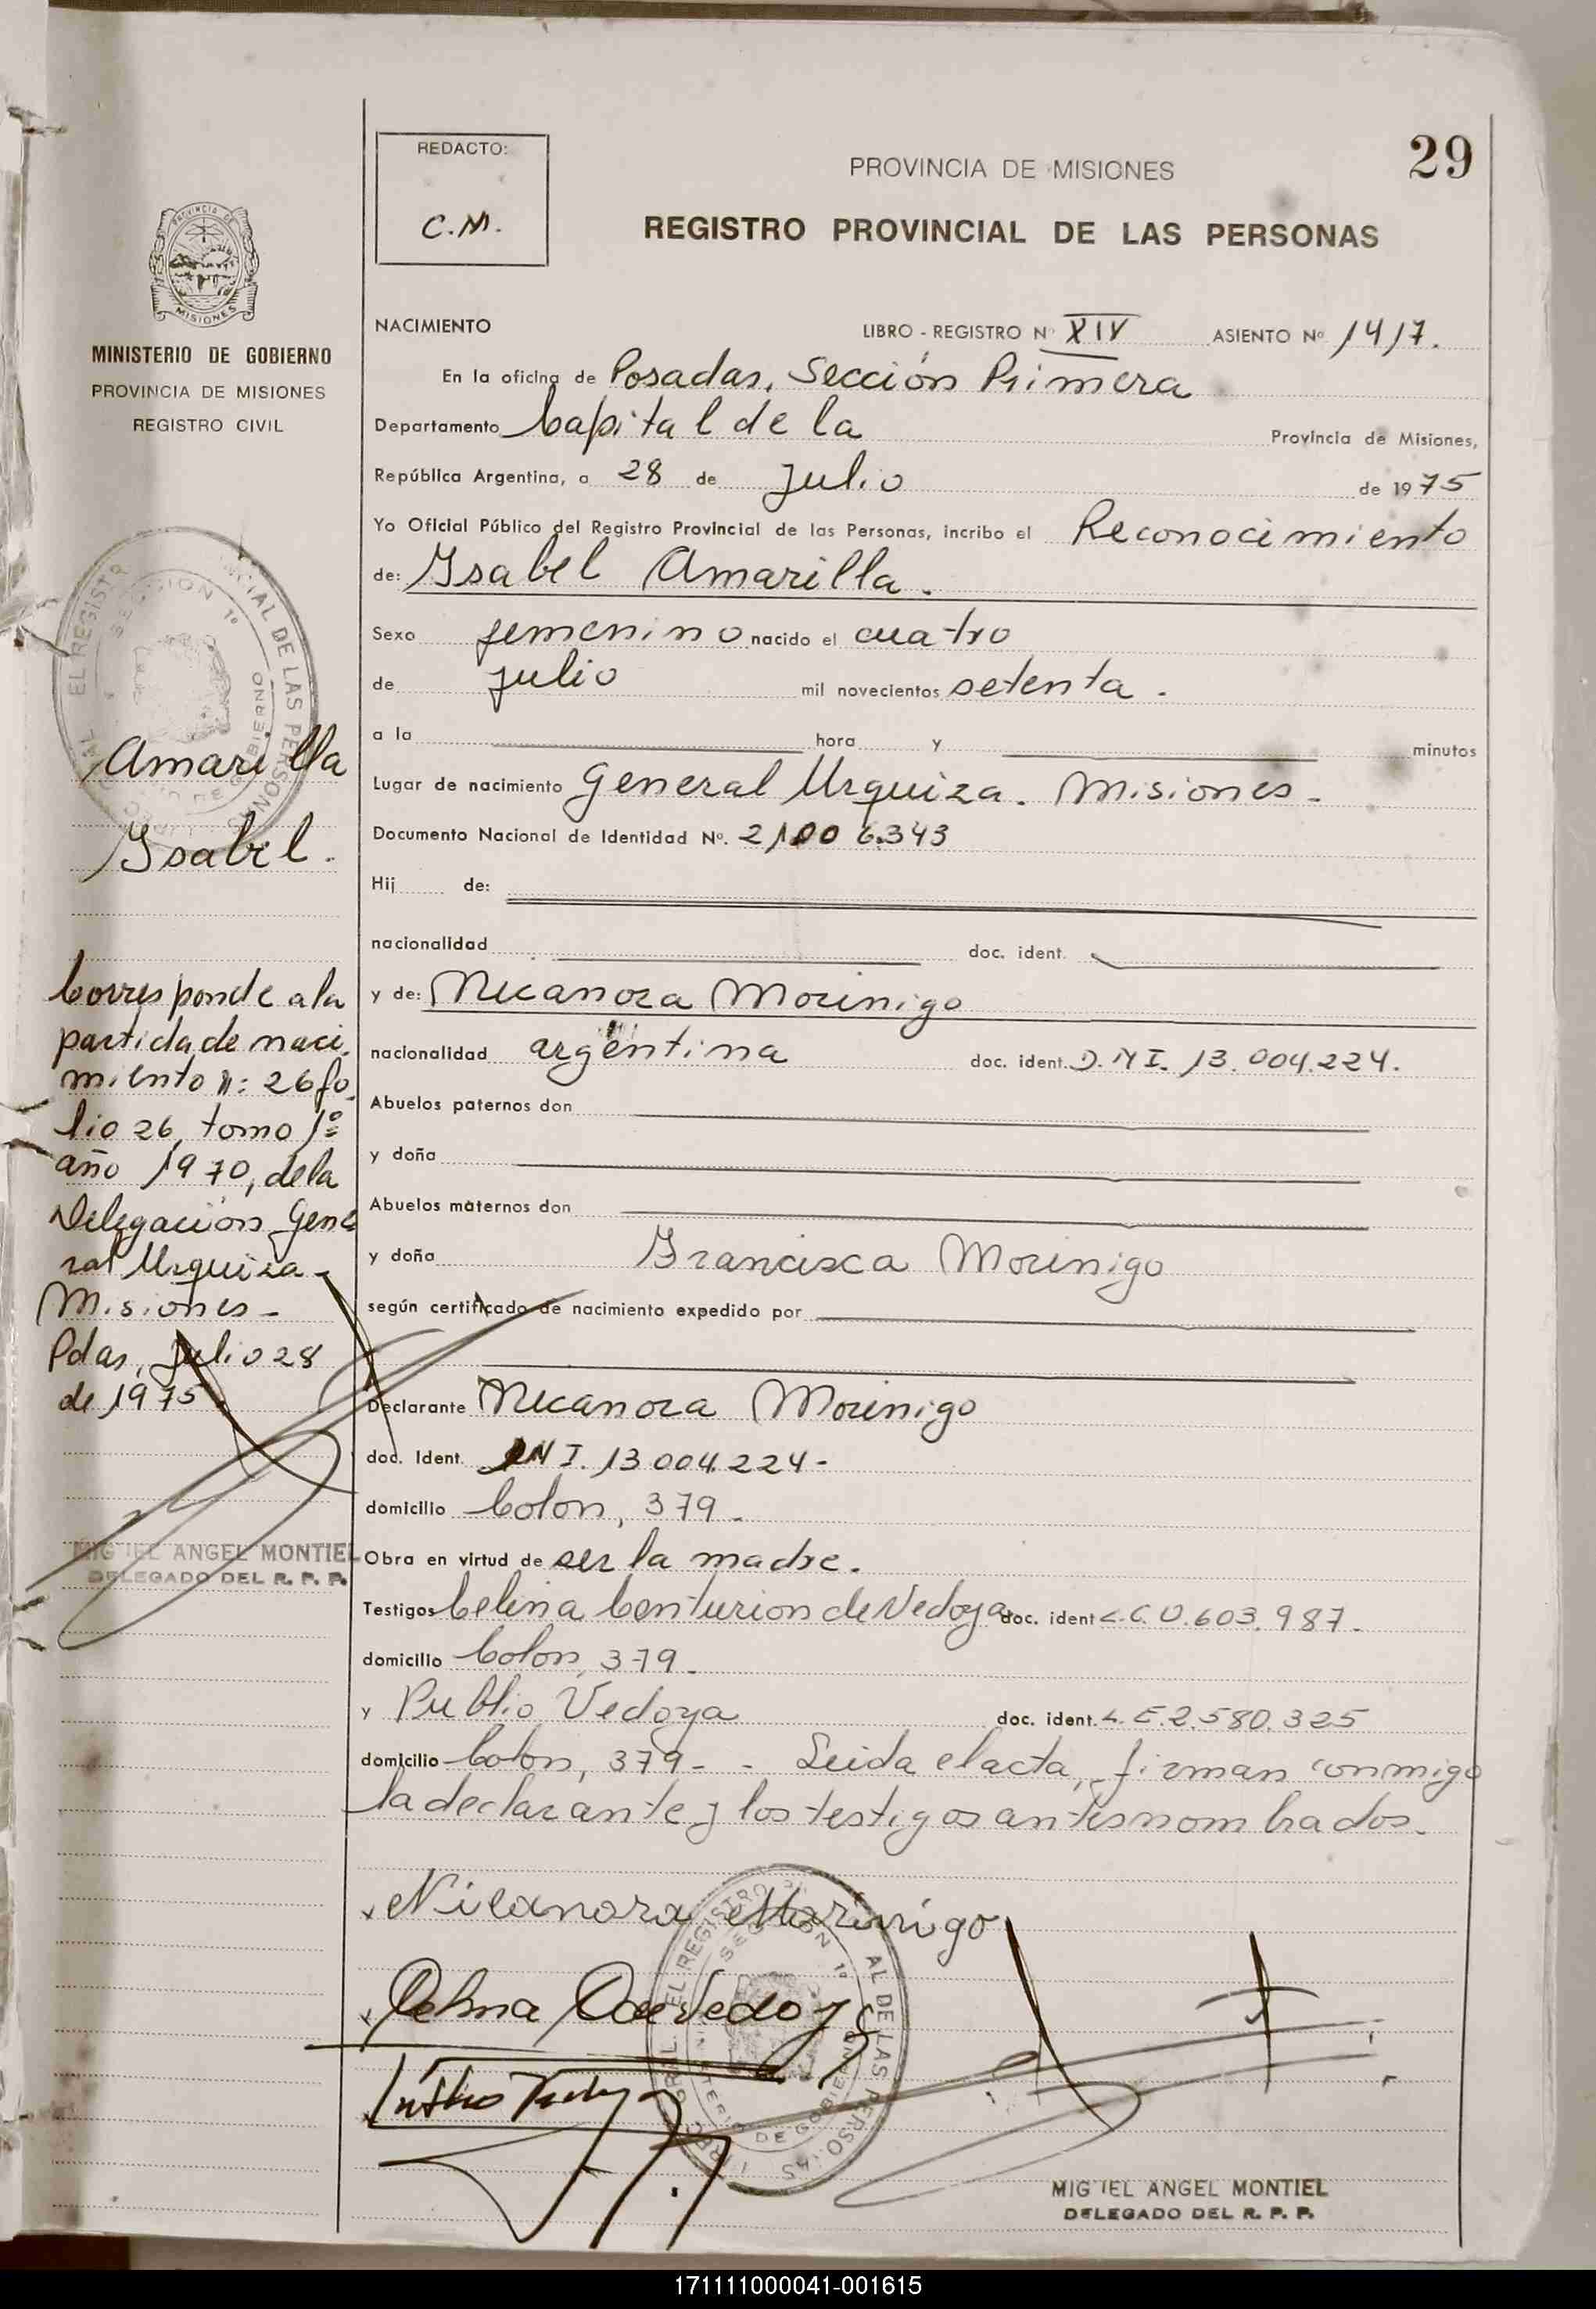 29
REDACTO:
C.M.
PROVINCIA DE MISIONES
REGISTRO PROVINCIAL DE LAS PERSONAS
PROVINCIA DE
MISIONES
MINISTERIO DE GOBIERNO
PROVINCIA DE MISIONES
REGISTRO CIVIL
NACIMIENTO LIBRO - REGISTRO Nº XIV ASIENTO Nº 1417.
En la oficina de Posadas, Sección Primera
Departamento Capital de la Provincia de Misiones,
República Argentina, a 28 de Julio de 1975
Yo Oficial Público del Registro Provincial de las Personas, incribo el Reconocimiento
de: Ysabel Amarilla.
Sexo femenino nacido el cuatro
de julio mil novecientos setenta.
a la hora y minutos
Lugar de nacimiento General Urquiza. Misiones.
Documento Nacional de Identidad Nº. 21.006.343
Hij de:
nacionalidad doc. ident.
y de: Nicanora Morinigo
nacionalidad argentina doc. ident. D.N.I. 13.004.224.
Abuelos paternos don
y doña
Abuelos maternos don
y doña Francisca Morinigo
según certificado de nacimiento expedido por
Declarante Nicanora Morinigo
doc. Ident. DNI. 13.004.224-
domicilio Colon, 379.
Obra en virtud de ser la madre.
Testigos Celina Centurion de Vedoya doc. ident L.C. 0.603.987.
domicilio Colon, 379.
y Publio Vedoya doc. ident. L.E. 2.580.325
domicilio Colon, 379- - Leida el acta, firman conmigo
la declarante y los testigos antes nombrados.
Amarilla
Ysabel.
Corresponde a la
partida de naci-
miento n: 26 fo-
lio 26, tomo 1º
año 1970, de la
Delegación Gene
ral Urquiza
Misiones-
Pdas, Julio 28
de 1975
MIGUEL ANGEL MONTIEL
DELEGADO DEL R. P. P.
Nicanora Morinigo
MIGUEL ANGEL MONTIEL
DELEGADO DEL R. P. P.
171111000041-001615